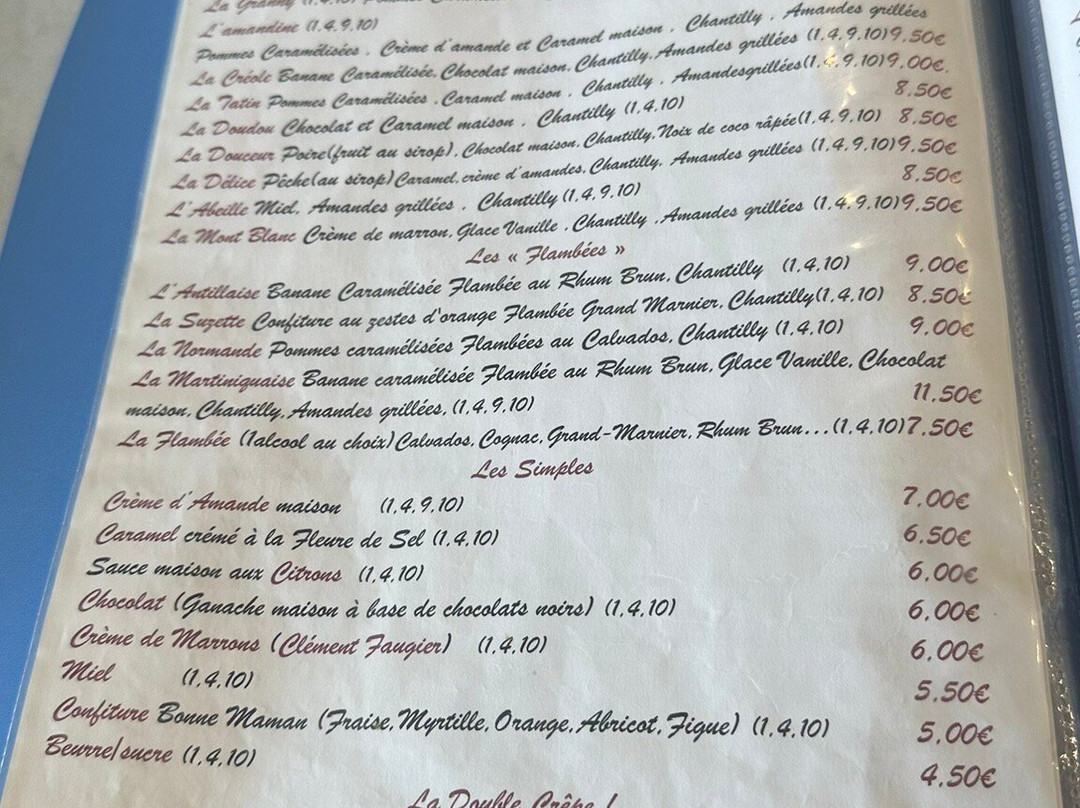 La Granny (1.4.10) Pommes
L'amandine (1.4.9.10)
Pommes Caramélisées . Crème d'amande et Caramel maison . Chantilly . Amandes grillées
La Créole Banane Caramélisée, Chocolat maison, Chantilly, Amandes grillées (1.4.9.10) 9.50€
La Tatin Pommes Caramélisées . Caramel maison . Chantilly . Amandesgrillées(1.4.9.10) 9.00€.
La Doudou Chocolat et Caramel maison . Chantilly (1.4.10) 8.50€
La Douceur Poire(fruit au sirop), Chocolat maison, Chantilly, Noix de coco râpée(1.4.9.10) 8.50€
La Délice Pêche(au sirop) Caramel, crème d'amandes, Chantilly, Amandes grillées (1.4.9.10) 9.50€
L'Abeille Miel, Amandes grillées . Chantilly (1.4.9.10) 8.50€
La Mont Blanc Crème de marron, Glace Vanille . Chantilly . Amandes grillées (1.4.9.10) 9.50€
Les « Flambées »
L'Antillaise Banane Caramélisée Flambée au Rhum Brun, Chantilly (1.4.10) 9.00€
La Suzette Confiture au zestes d'orange Flambée Grand Marnier, Chantilly(1.4.10) 8.50€
La Normande Pommes caramélisées Flambées au Calvados, Chantilly (1.4.10) 9.00€
La Martiniquaise Banane caramélisée Flambée au Rhum Brun, Glace Vanille, Chocolat
maison, Chantilly, Amandes grillées, (1.4.9.10) 11.50€
La Flambée (1alcool au choix) Calvados, Cognac, Grand-Marnier, Rhum Brun...(1.4.10) 7.50€
Les Simples
Crème d'Amande maison (1.4.9.10) 7.00€
Caramel crémé à la Fleure de Sel (1.4.10) 6.50€
Sauce maison aux Citrons (1.4.10) 6.00€
Chocolat (Ganache maison à base de chocolats noirs) (1.4.10) 6.00€
Crème de Marrons (Clément Faugier) (1.4.10) 6.00€
Miel (1.4.10) 5.50€
Confiture Bonne Maman (Fraise, Myrtille, Orange, Abricot, Figue) (1.4.10) 5.00€
Beurre/sucre (1.4.10) 4.50€
La Double Crêpe !